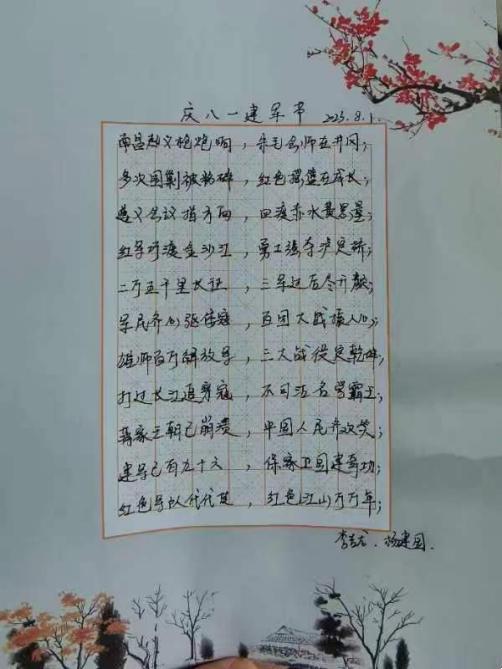 庆八一建军节 2023.8.1.
南昌起义枪炮响，朱毛会师在井冈；
多次围剿被粉碎，红色摇篮在成长；
遵义会议指方向，四渡赤水最思量；
红军巧渡金沙江，勇士强夺泸定桥；
二万五千里长征，三军过后尽开颜；
军民齐心驱倭寇，百团大战壤人心；
雄师百万解放军，三大战役定乾坤；
打过长江追穷寇，不可沽名学霸王；
蒋家王朝已崩溃，中国人民齐欢笑；
建军已百九十六，保家卫国建奇功；
红色军队代代建，红色江山万万年；
李吉龙．杨建国．